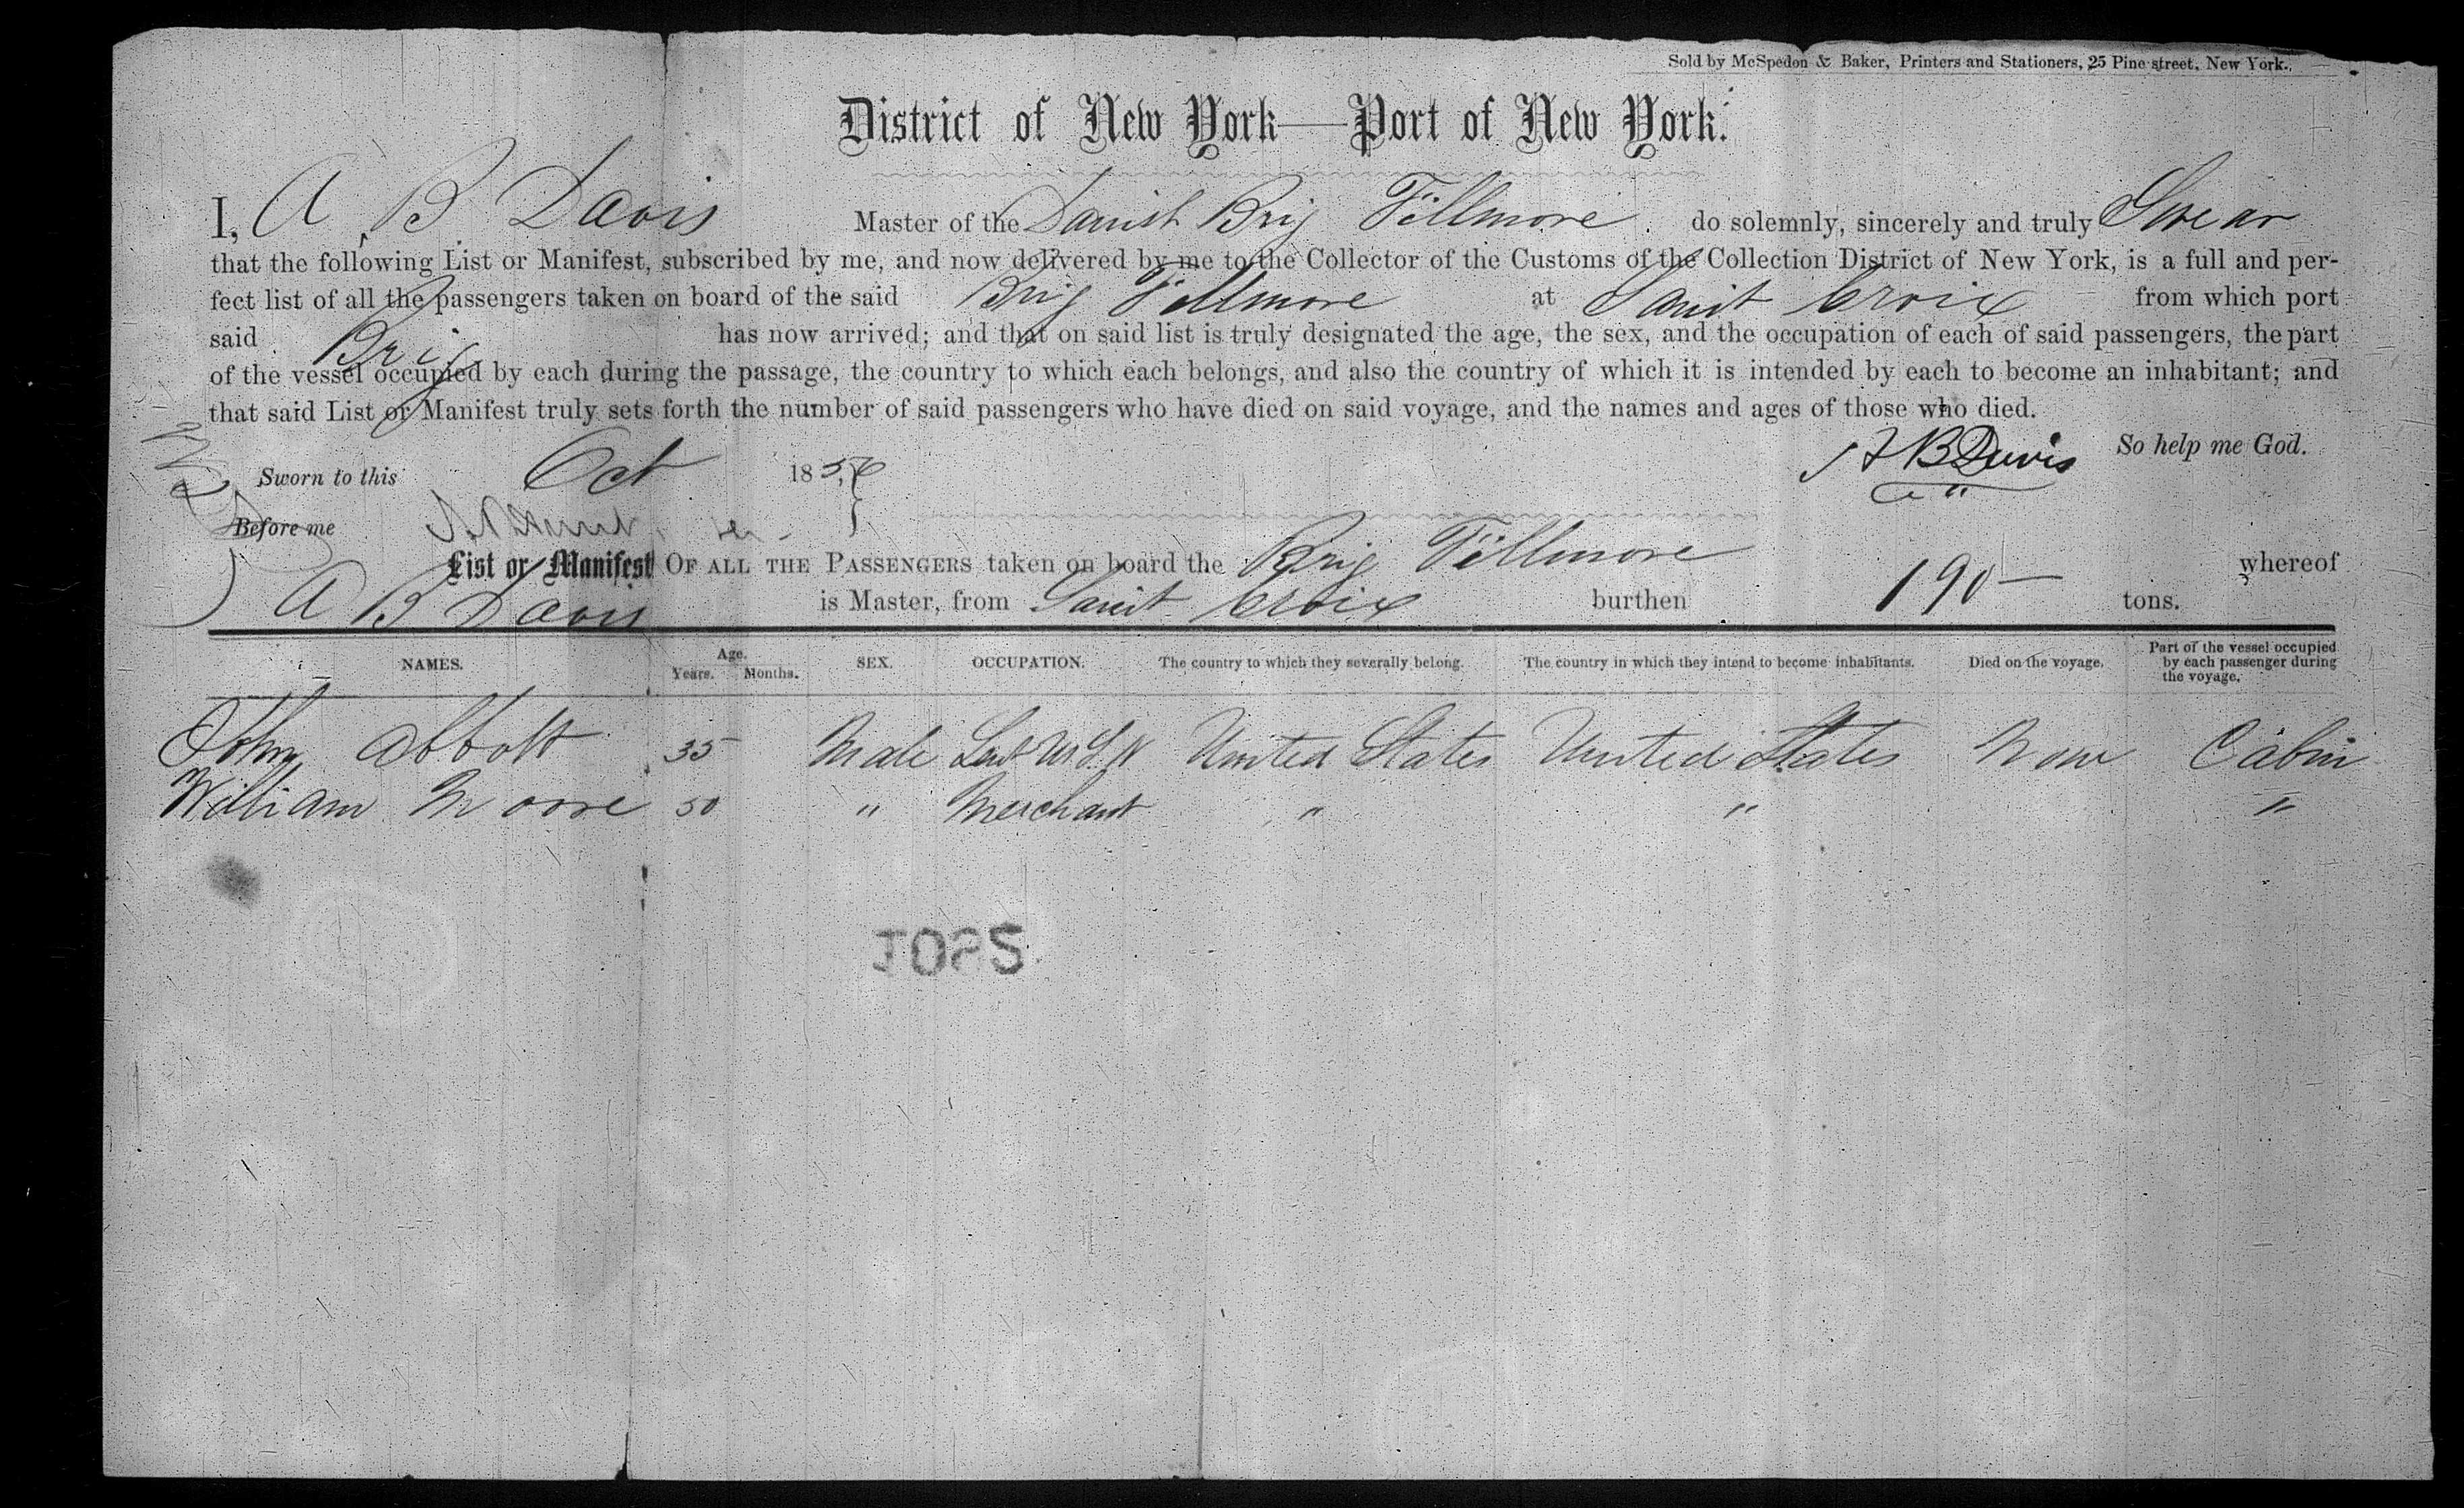 Sold by McSpedon & Baker, Printers and Stationers, 25 Pine street, New York.
District of New York—Port of New York.
I, A B Davis Master of the Danish Brig Fillmore do solemnly, sincerely and truly Swear
that the following List or Manifest, subscribed by me, and now delivered by me to the Collector of the Customs of the Collection District of New York, is a full and per-
fect list of all the passengers taken on board of the said Brig Fillmore at Saint Croix from which port
said Brig has now arrived; and that on said list is truly designated the age, the sex, and the occupation of each of said passengers, the part
of the vessel occupied by each during the passage, the country to which each belongs, and also the country of which it is intended by each to become an inhabitant; and
that said List or Manifest truly sets forth the number of said passengers who have died on said voyage, and the names and ages of those who died.
So help me God.
Sworn to this Oct 185 A B Davis
Before me
List or Manifest OF ALL THE PASSENGERS taken on board the Brig Fillmore whereof
A B Davis is Master, from Saint Croix burthen 190 tons.
NAMES. Age. Years. Months. SEX. OCCUPATION. The country to which they severally belong. The country in which they intend to become inhabitants. Died on the voyage. Part of the vessel occupied by each passenger during the voyage.
John Abbott 35 Male United States United States None Cabin
William Moore 50 " Merchant " " "